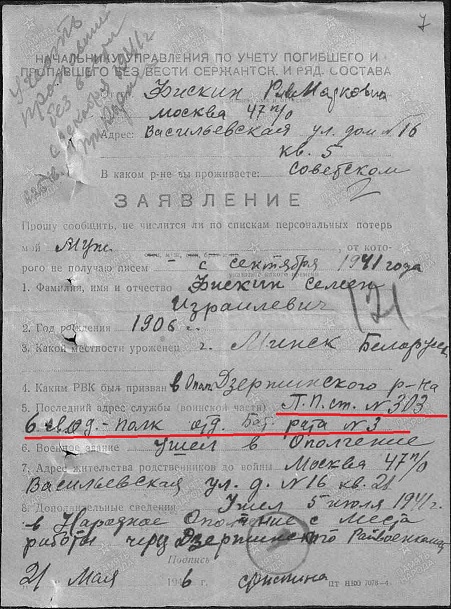 7
НАЧАЛЬНИКУ УПРАВЛЕНИЯ ПО УЧЕТУ ПОГИБШЕГО И
ПРОПАВШЕГО БЕЗ ВЕСТИ СЕРЖАНТСК. И РЯД. СОСТАВА
Фискин
Москва 47 п/о
Адрес: Васильевская ул. дом №16
кв. 5
В каком р-не вы проживаете: Советском
ЗАЯВЛЕНИЕ
Прошу сообщить, не числится ли по спискам персональных потерь
мой муж, от кото-
рого не получаю писем - с сентября 1941 года
1. Фамилия, имя и отчество Фискин Семен
Израилевич
2. Год рождения 1906
3. Какой местности уроженец г. Минск Белорусс
4. Каким РВК был призван в Опол. Дзержинского р-на
5. Последний адрес службы (воинской части) П.П.ст. №303
6 полк отд. бат. рота №3
6. Военное звание Ушел в Ополчение
7. Адрес жительства родственников до войны Москва 47 п/о
Васильевская ул. д. №16 кв.
8. Дополнительные сведения Ушел 5 июля 1941 г.
в Народное Ополчение с места
работы через Дзержинского Райвоенкома
Подпись
21 Мая 1946